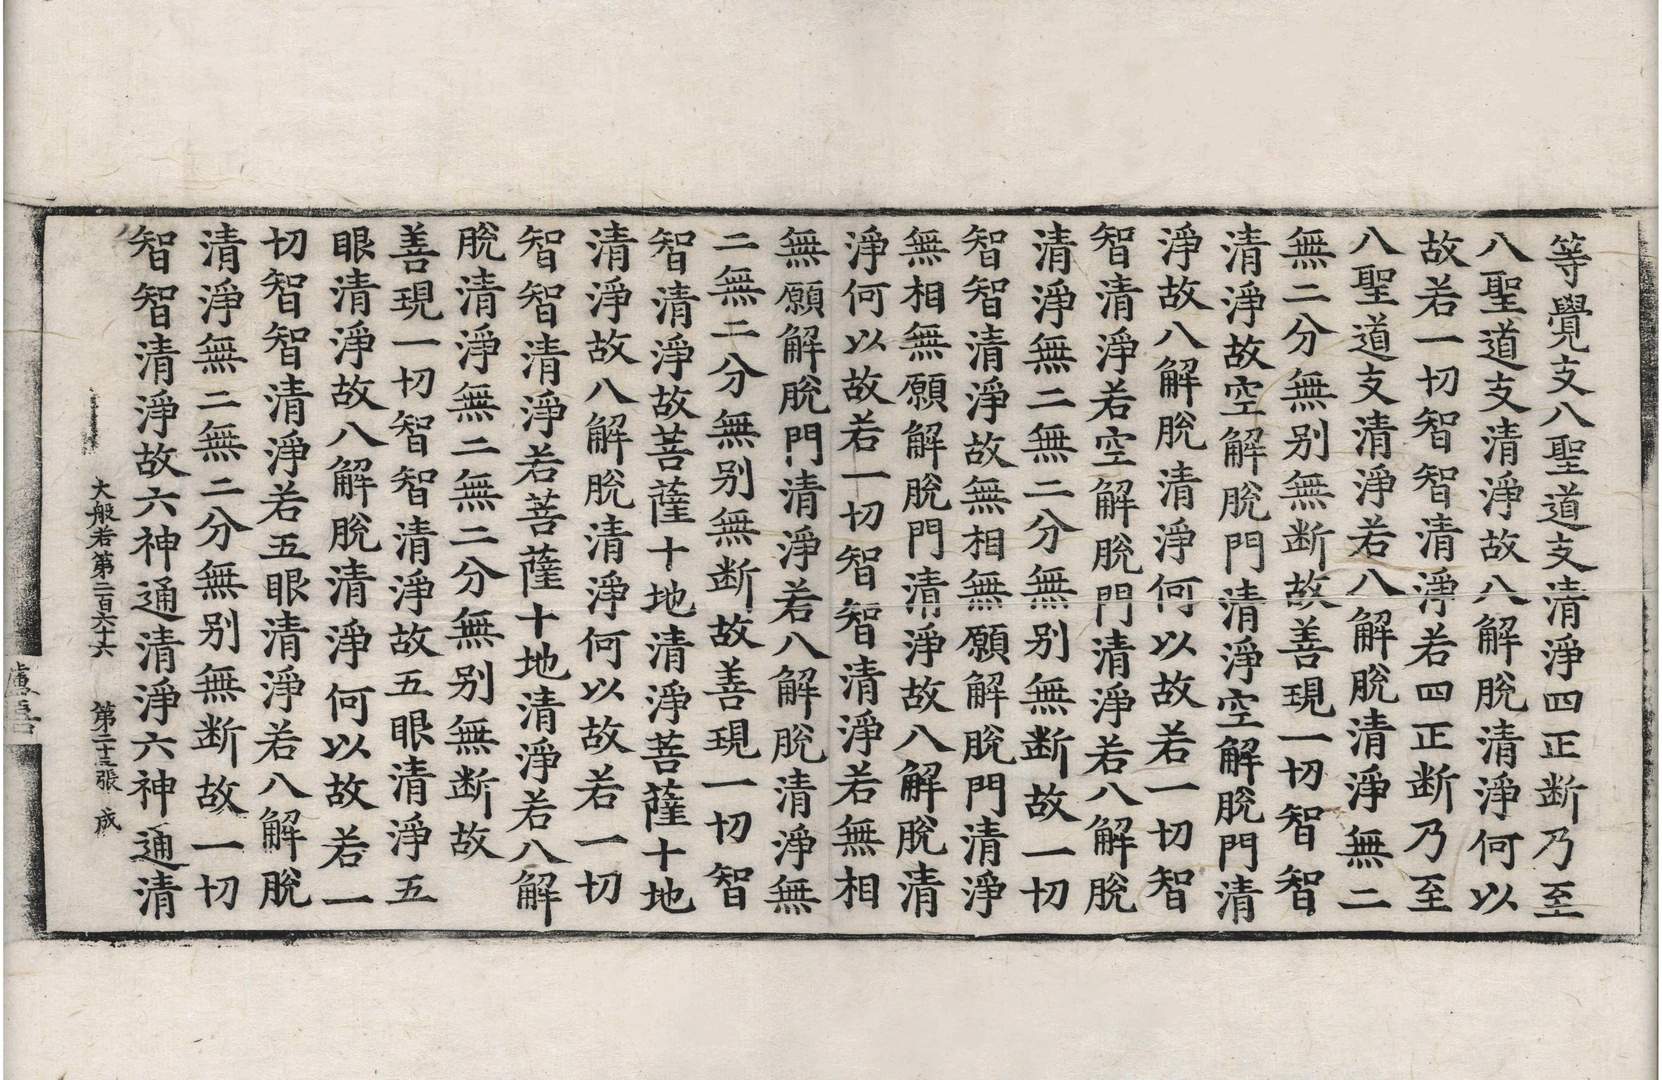 等覺支八聖道支清淨四正断乃至
八聖道支清淨故八解脫清淨何以
故若一切智智清淨若四正断乃至
八聖道支清淨若八解脫清淨無二
無二分無别無断故善現一切智智
清淨故空解脫門清淨空解脫門清
淨故八解脫清淨何以故若一切智
智清淨若空解脫門清淨若八解脫
清淨無二無二分無别無断故一切
智智清淨故無相無願解脫門清淨
無相無願解脫門清淨故八解脫清
淨何以故若一切智智清淨若無相
無願解脫門清淨若八解脫清淨無
二無二分無别無断故善現一切智
智清淨故菩薩十地清淨菩薩十地
清淨故八解脫清淨何以故若一切
智智清淨若菩薩十地清淨若八解
脫清淨無二無二分無别無断故
善現一切智智清淨故五眼清淨五
眼清淨故八解脫清淨何以故若一
切智智清淨若五眼清淨若八解脫
清淨無二無二分無别無断故一切
智智清淨故六神通清淨六神通清
大般若第二百六十六 第二十三張 成